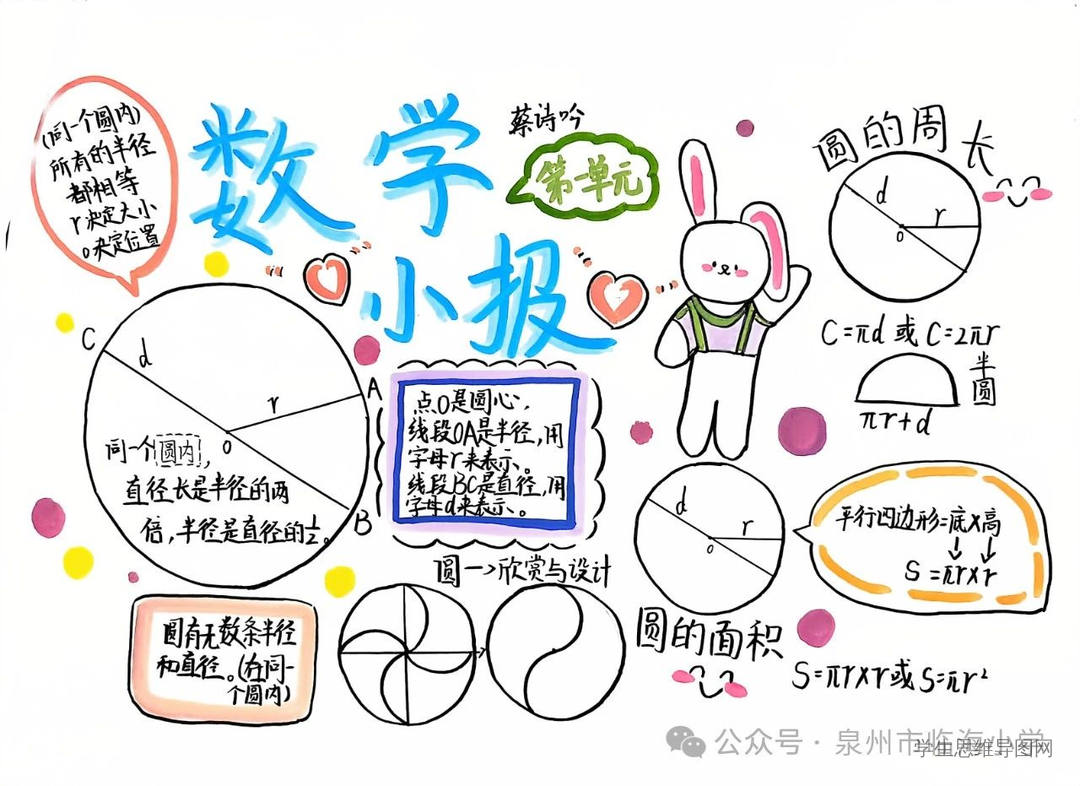 (同一个圆内)
所有的半径
都相等
r决定大小
o决定位置
数学
小报
蔡诗吟
第一单元
圆的周长
d
r
o
C=πd 或 C=2πr
半圆
πr+d
C
d
A
r
o
B
同一个圆内,
直径长是半径的两
倍,半径是直径的½。
点O是圆心,
线段OA是半径,用
字母r来表示、。
线段BC是直径,用
字母d来表示、。
d
r
o
平行四边形=底×高
↓ ↓
S=πr×r
圆一→欣赏与设计
圆有无数条半径
和直径。(在同一
个圆内)
圆的面积
S=πr×r或S=πr²
公众号·泉州市临海小学
学生思维导图网